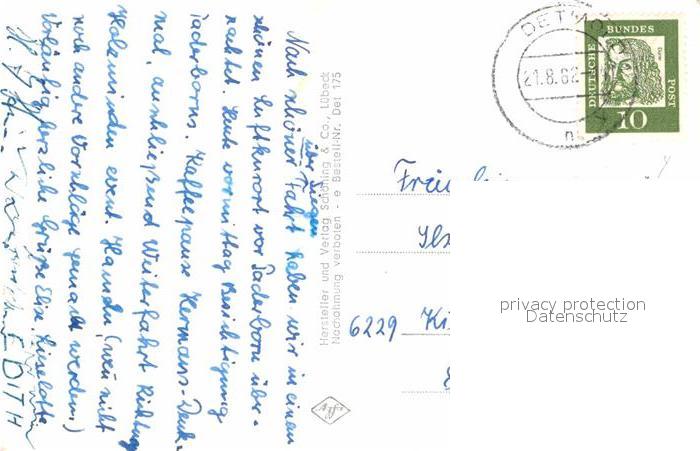 Nach schöner Fahrt haben wir in einem
über Siegen
schönen Luftkurort vor Paderborn über-
nachtet. Heute vormittag Besichtigung
Paderborns. Kaffeepause Hermanns-Denk-
mal, anschließend Weiterfahrt Richtung
Holzminden event. Hameln (wenn nicht
noch andere Vorschläge gemacht werden.)
Vorläufig herzliche Grüße Elise, Liselotte
EDITH
Hersteller und Verlag Schöning & Co., Lübeck
Nachahmung verboten - e Bestell-Nr. Det 175
DETMOLD
21.8.62
n
DEUTSCHE BUNDES POST
Dürer
10
6229 Ki
privacy protection
Datenschutz